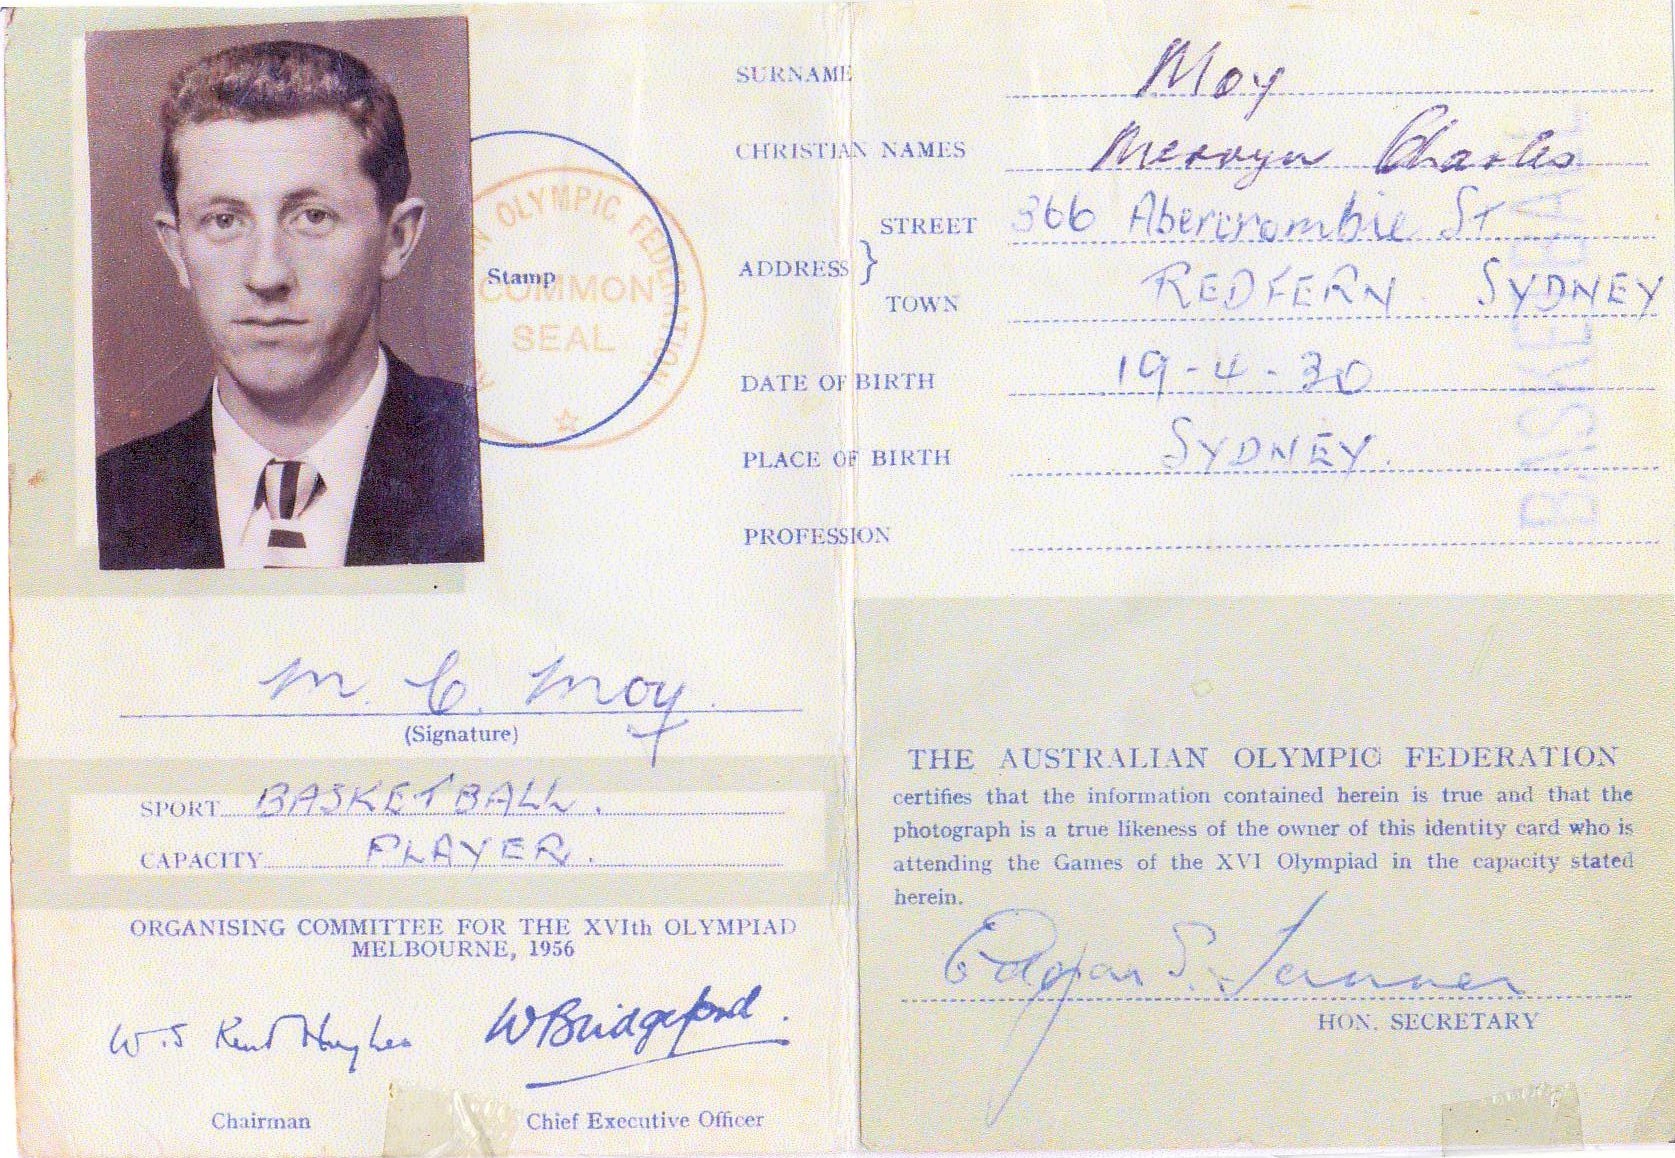 SURNAME Moy
CHRISTIAN NAMES Mervyn Charles
STREET 366 Abercrombie St
ADDRESS }
TOWN REDFERN SYDNEY
DATE OF BIRTH 19-4-30
PLACE OF BIRTH SYDNEY.
PROFESSION
BASKETBALL
Stamp
OLYMPIC FEDERATION
COMMON
SEAL
M. C. Moy.
(Signature)
SPORT BASKETBALL.
CAPACITY PLAYER.
ORGANISING COMMITTEE FOR THE XVIth OLYMPIAD
MELBOURNE, 1956
W. S Kent Hughes W Bridgeford.
Chairman Chief Executive Officer
THE AUSTRALIAN OLYMPIC FEDERATION
certifies that the information contained herein is true and that the
photograph is a true likeness of the owner of this identity card who is
attending the Games of the XVI Olympiad in the capacity stated
herein.
Edgar S. Tanner
HON. SECRETARY